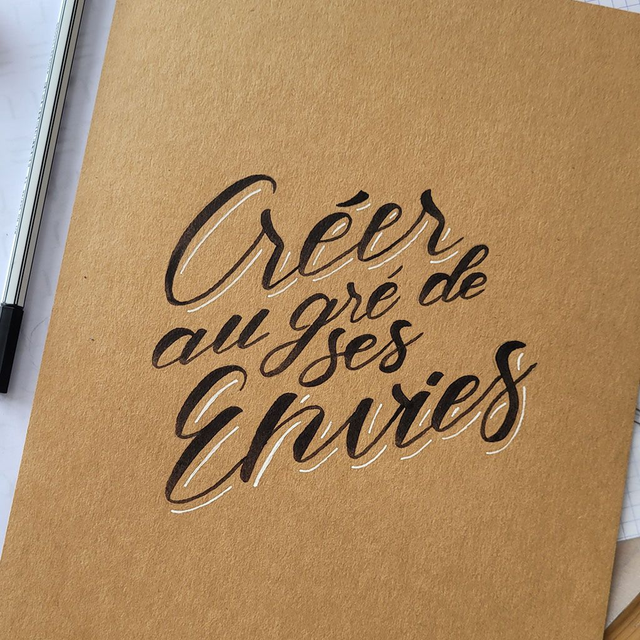 Créer
au gré de
ses
Envies